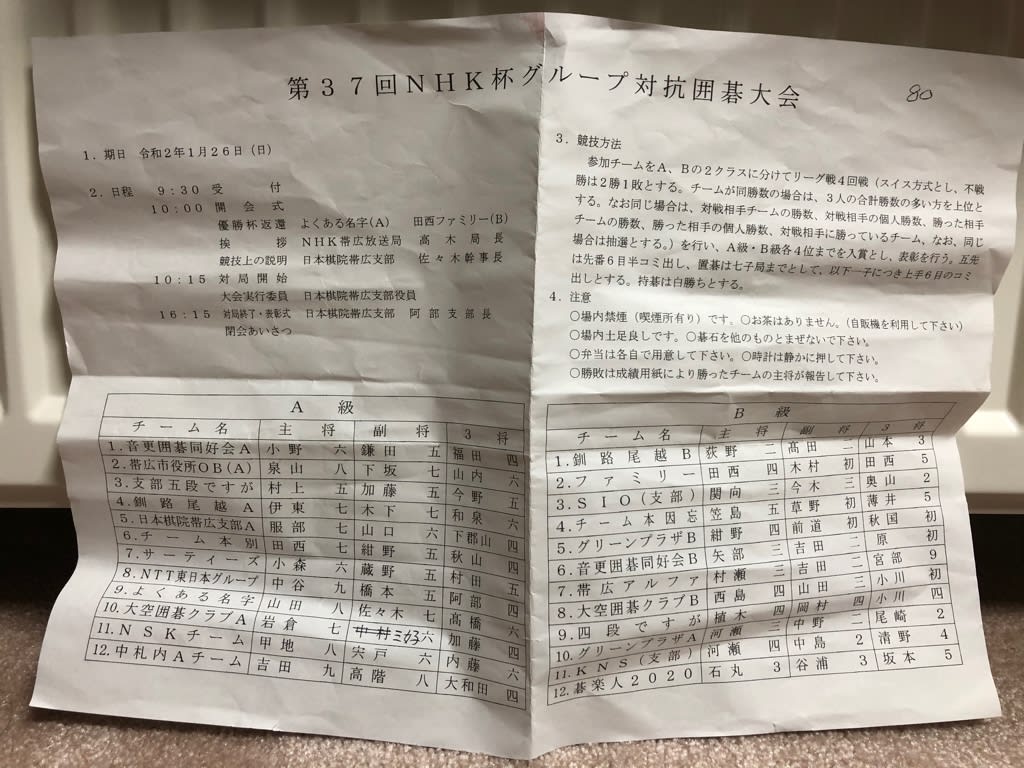 第37回NHK杯グループ対抗囲碁大会
80
1．期日 令和2年1月26日（日）
2．日程 9：30 受付
10：00 開会式
優勝杯返還 よくある名字(A) 田西ファミリー(B)
挨拶 NHK帯広放送局 高木局長
競技上の説明 日本棋院帯広支部 佐々木幹事長
10：15 対局開始
大会実行委員 日本棋院帯広支部役員
16：15 対局終了・表彰式 日本棋院帯広支部 阿部支部長
閉会あいさつ
3．競技方法
参加チームをA、Bの2クラスに分けてリーグ戦4回戦（スイス方式とし、不戦
勝は2勝1敗とする。チームが同勝数の場合は、3人の合計勝数の多い方を上位と
する。なお同じ場合は、対戦相手チームの勝数、対戦相手の個人勝数、勝った相手
チームの勝数、勝った相手の個人勝数、対戦相手に勝っているチーム、なお、同じ
場合は抽選とする。）を行い、A級・B級各4位までを入賞とし、表彰を行う。互先
は先番6目半コミ出し、置碁は七子局までとして、以下一子につき上手6目のコミ
出しとする。持碁は白勝ちとする。
4．注意
○場内禁煙（喫煙所有り）です。○お茶はありません。（自販機を利用して下さい）
○場内土足良しです。○碁石を他のものとまぜないで下さい。
○弁当は各自で用意して下さい。○時計は静かに押して下さい。
○勝敗は成績用紙により勝ったチームの主将が報告して下さい。
A級
チーム名 主将 副将 3将
1.音更囲碁同好会A 小野 六 鎌田 五 福田 四
2.帯広市役所OB(A) 泉山 八 下坂 七 山内 六
3.支部五段ですが 村上 五 加藤 五 今野 五
4.釧路尾越A 伊東 七 木下 七 和泉 六
5.日本棋院帯広支部A 服部 七 山口 六 下郡山 四
6.チーム本別 田西 七 紺野 五 秋山 四
7.サーティーズ 小森 六 蔵野 五 村田 五
8.NTT東日本グループ 中谷 九 橋本 五 阿部 四
9.よくある名字 山田 八 佐々木 七 髙橋 六
10.大空囲碁クラブA 岩倉 七 中村 六 加藤 四
11.NSKチーム 甲地 八 宍戸 六 内藤 六
12.中札内Aチーム 吉田 九 高階 八 大和田 四
B級
チーム名 主将 副将 3将
1.釧路尾越B 荻野 二 髙田 二 山本 3
2.ファミリー 田西 四 木村 初 田西 5
3.SIO(支部) 関向 三 今木 三 奥山 2
4.チーム本因忘 笠島 五 草野 初 薄井 5
5.グリーンプラザB 紺野 四 前道 初 秋国 初
6.音更囲碁同好会B 矢部 三 吉田 二 原 初
7.帯広アルファ 村瀬 三 吉田 二 宮部 9
8.大空囲碁クラブB 西島 四 山田 三 小川 初
9.四段ですが 植木 四 岡村 四 小川 四
10.グリーンプラザA 河瀬 三 中野 二 尾崎 2
11.KNS(支部) 河瀬 四 中島 2 清野 4
12.碁楽人2020 石丸 3 谷浦 3 坂本 5